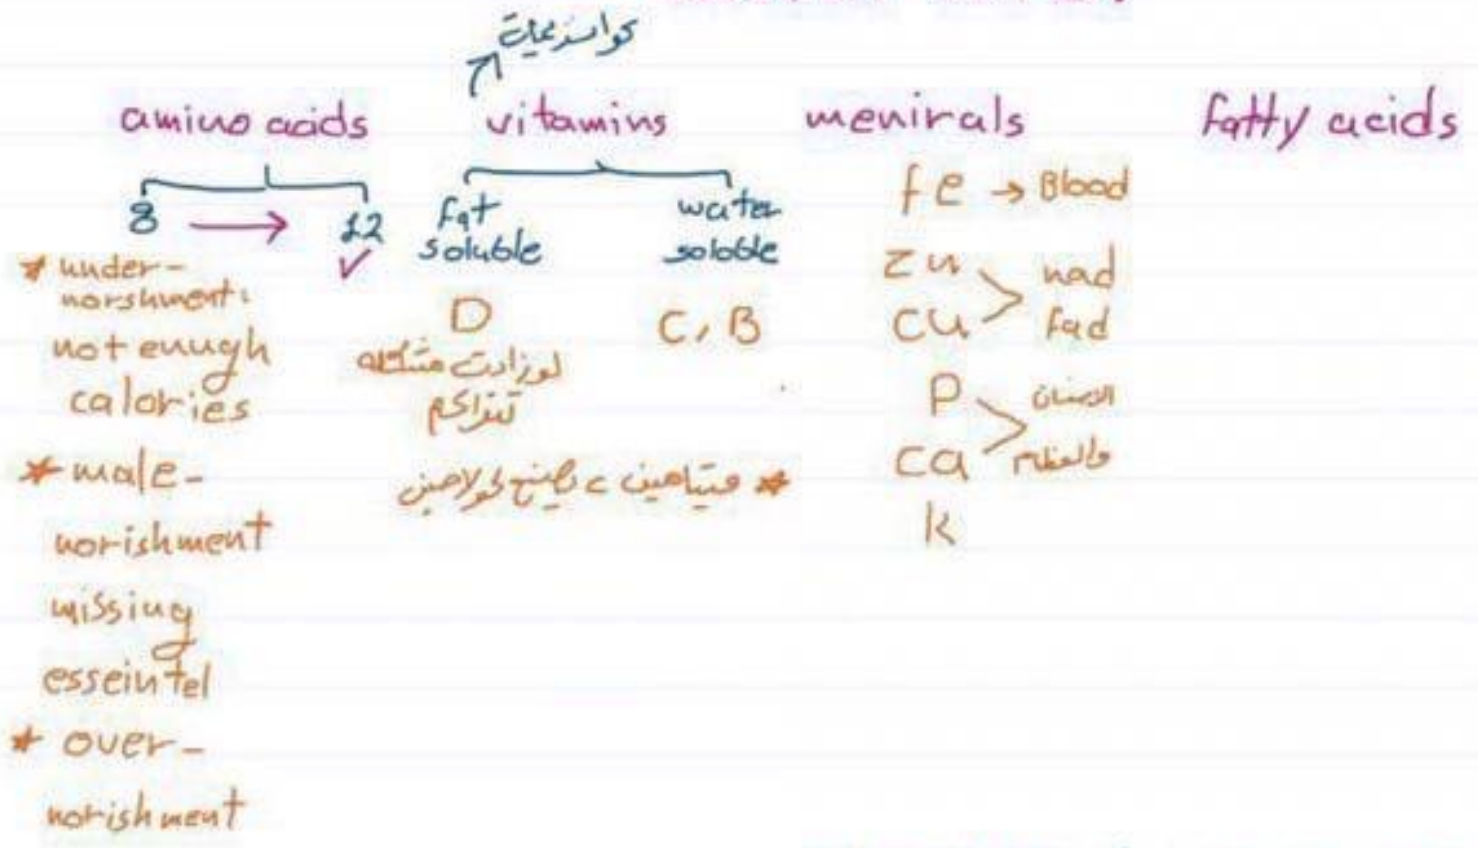 كوانزيمات
amino acids
8 → 12 ✓
* under-
norshment:
not enugh
calories
* male-
norishment
missing
esseintel
* over-
norishment
vitamins
fat
soluble
D
لو زادت مشكله
تتراكم
water
soloble
C, B
* فيتامين c يصنع كولاجين
menirals
fe → Blood
Zn
Cu
nad
fad
P
Ca
الاسنان
والعظم
k
fatty acids